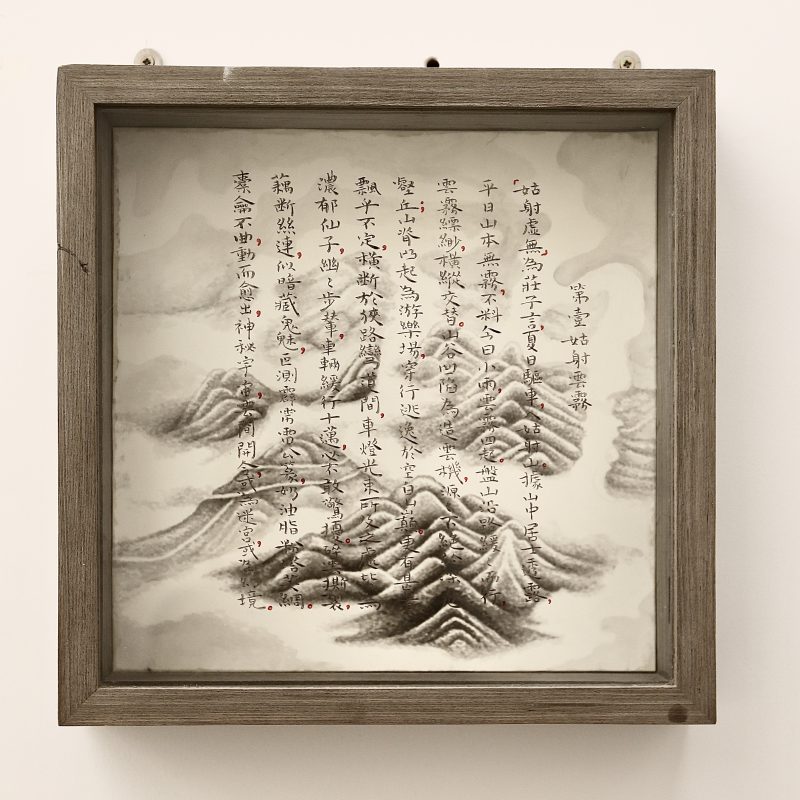 第壹 姑射雲霧
姑射虛無,為莊子言,夏日驅車入姑射山,據山中居士透露,
平日山本無霧,不料今日小雨,雲霧四起,盤山沿路緩緩而行,
雲霧縹緲,橫縱交替。山谷凹陷為造雲機,源源不絕
壑丘山脊以起為游樂場,穿行逃逸於空白山巔,更有甚
飄乎不定,橫斷於狹路彎道間,車燈光束所及之處皆為
濃郁仙子,幽幽步輦,車輛緩行十邁,必不敢驚擾,撕裂,
藕斷絲連,似暗藏鬼魅,叵測霹靂雷公,奶油脂粉
橐龠不曲,動而愈出,神秘宇宙雲間開合,或為迷宮,或為境。